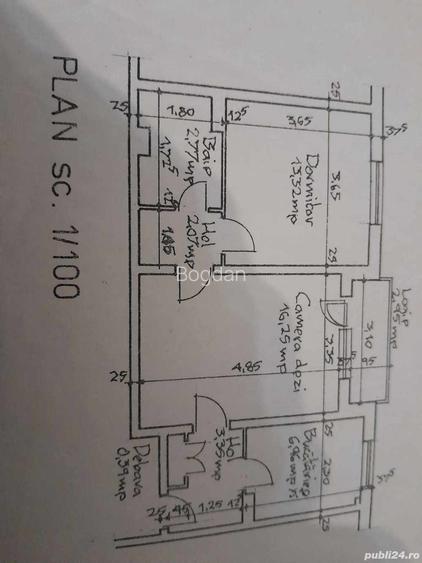 PLAN SC. 1/100
25
1,80
12⁵
3,65
25
Baie
2,77mp
1,72⁵
Dormitor
13,32mp
3,65
Hol
2,07mp
25
Bogdan
Camera de zi
16,25mp
4,85
3,35
Logie
2,95mp
3,10
95
25
25
Hol
3,35mp
Bucătărie
2,20
Debara
0,39mp
25
45
1,25
12⁵
25
publi24.ro